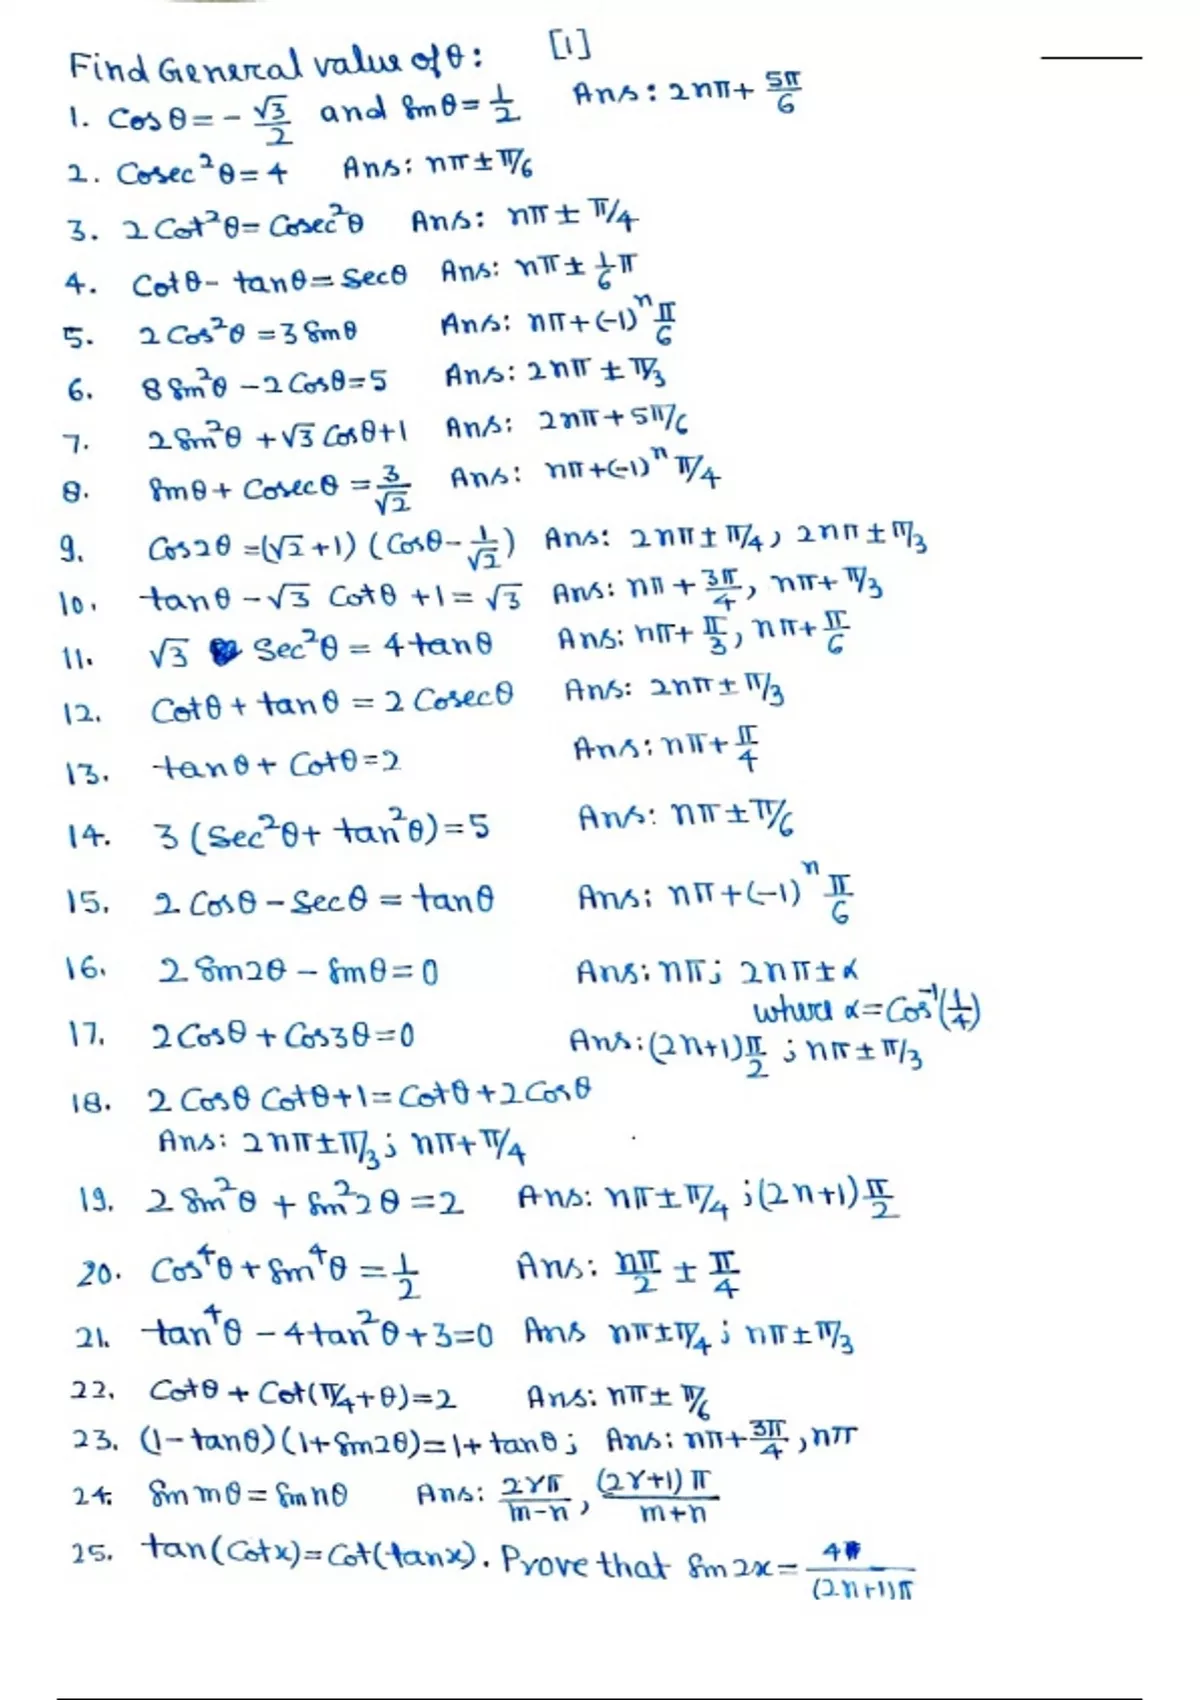 Find General value of θ: [1]
1. Cos θ = - √3/2 and Sin θ = 1/2 Ans: 2nπ + 5π/6
2. Cosec²θ = 4 Ans: nπ ± π/6
3. 2 Cot²θ = Cosec²θ Ans: nπ ± π/4
4. Cot θ - tan θ = Sec θ Ans: nπ ± 1/6 π
5. 2 Cos²θ = 3 Sin θ Ans: nπ + (-1)ⁿ π/6
6. 8 Sin²θ - 2 Cos θ = 5 Ans: 2nπ ± π/3
7. 2 Sin²θ + √3 Cos θ + 1 Ans: 2nπ + 5π/6
8. Sin θ + Cosec θ = 3/√2 Ans: nπ + (-1)ⁿ π/4
9. Cos 2θ = (√2 + 1) (Cos θ - 1/√2) Ans: 2nπ ± π/4, 2nπ ± π/3
10. tan θ - √3 Cot θ + 1 = √3 Ans: nπ + 3π/4, nπ + π/3
11. √3 Sec²θ = 4 tan θ Ans: nπ + π/3, nπ + π/6
12. Cot θ + tan θ = 2 Cosec θ Ans: 2nπ ± π/3
13. tan θ + Cot θ = 2 Ans: nπ + π/4
14. 3 (Sec²θ + tan²θ) = 5 Ans: nπ ± π/6
15. 2 Cos θ - Sec θ = tan θ Ans: nπ + (-1)ⁿ π/6
16. 2 Sin 2θ - Sin θ = 0 Ans: nπ; 2nπ ± α
where α = Cos⁻¹(1/4)
17. 2 Cos θ + Cos 3θ = 0 Ans: (2n+1) π/2 ; nπ ± π/3
18. 2 Cos θ Cot θ + 1 = Cot θ + 2 Cos θ
Ans: 2nπ ± π/3; nπ + π/4
19. 2 Sin²θ + Sin²2θ = 2 Ans: nπ ± π/4 ; (2n+1) π/2
20. Cos⁴θ + Sin⁴θ = 1/2 Ans: nπ/2 ± π/4
21. tan⁴θ - 4 tan²θ + 3 = 0 Ans nπ ± π/4 ; nπ ± π/3
22. Cot θ + Cot (π/4 + θ) = 2 Ans: nπ ± π/6
23. (1 - tan θ) (1 + Sin 2θ) = 1 + tan θ ; Ans: nπ + 3π/4, nπ
24. Sin mθ = Sin nθ Ans: 2rπ/m-n, (2r+1)π/m+n
25. tan (Cot x) = Cot (tan x). Prove that Sin 2x = 4/(2n+1)π